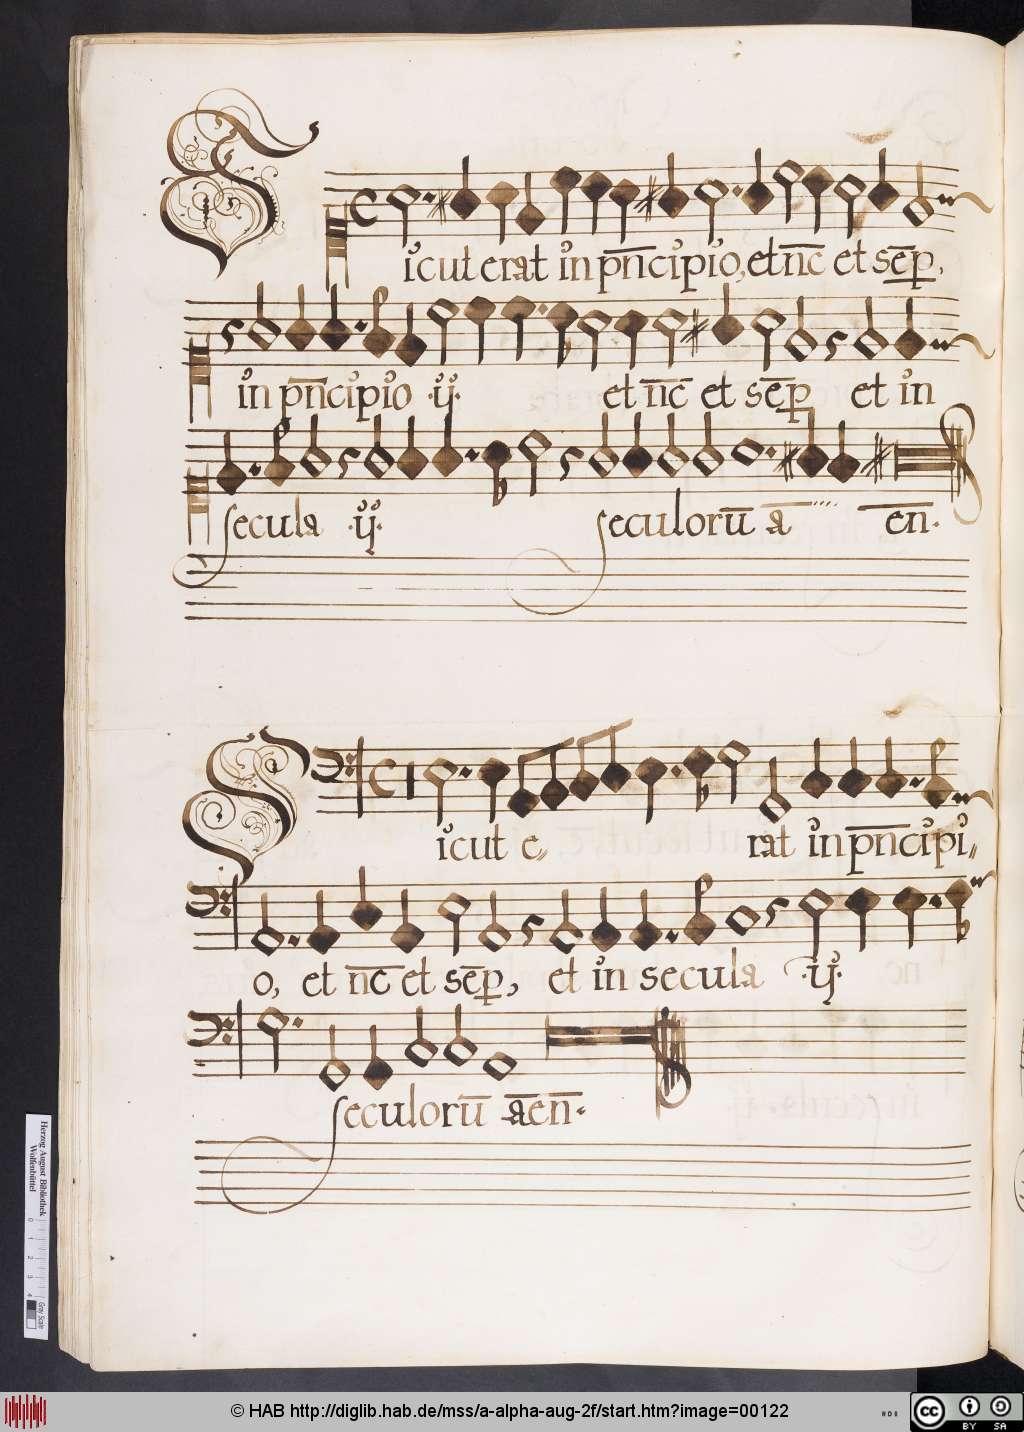 Sicut erat in prīncipio, et nc̄ et sēp,
in prīncipio .ij. et nc̄ et sēp et in
secula .ij. seculorū a en̄.
Sicut e rat in prīncipi
o, et nc̄ et sēp, et in secula .ij.
seculorū āen̄.
Herzog August Bibliothek
Wolfenbüttel
0 1 2 3 4
Gray Scale
© HAB http://diglib.hab.de/mss/a-alpha-aug-2f/start.htm?image=00122
cc BY SA